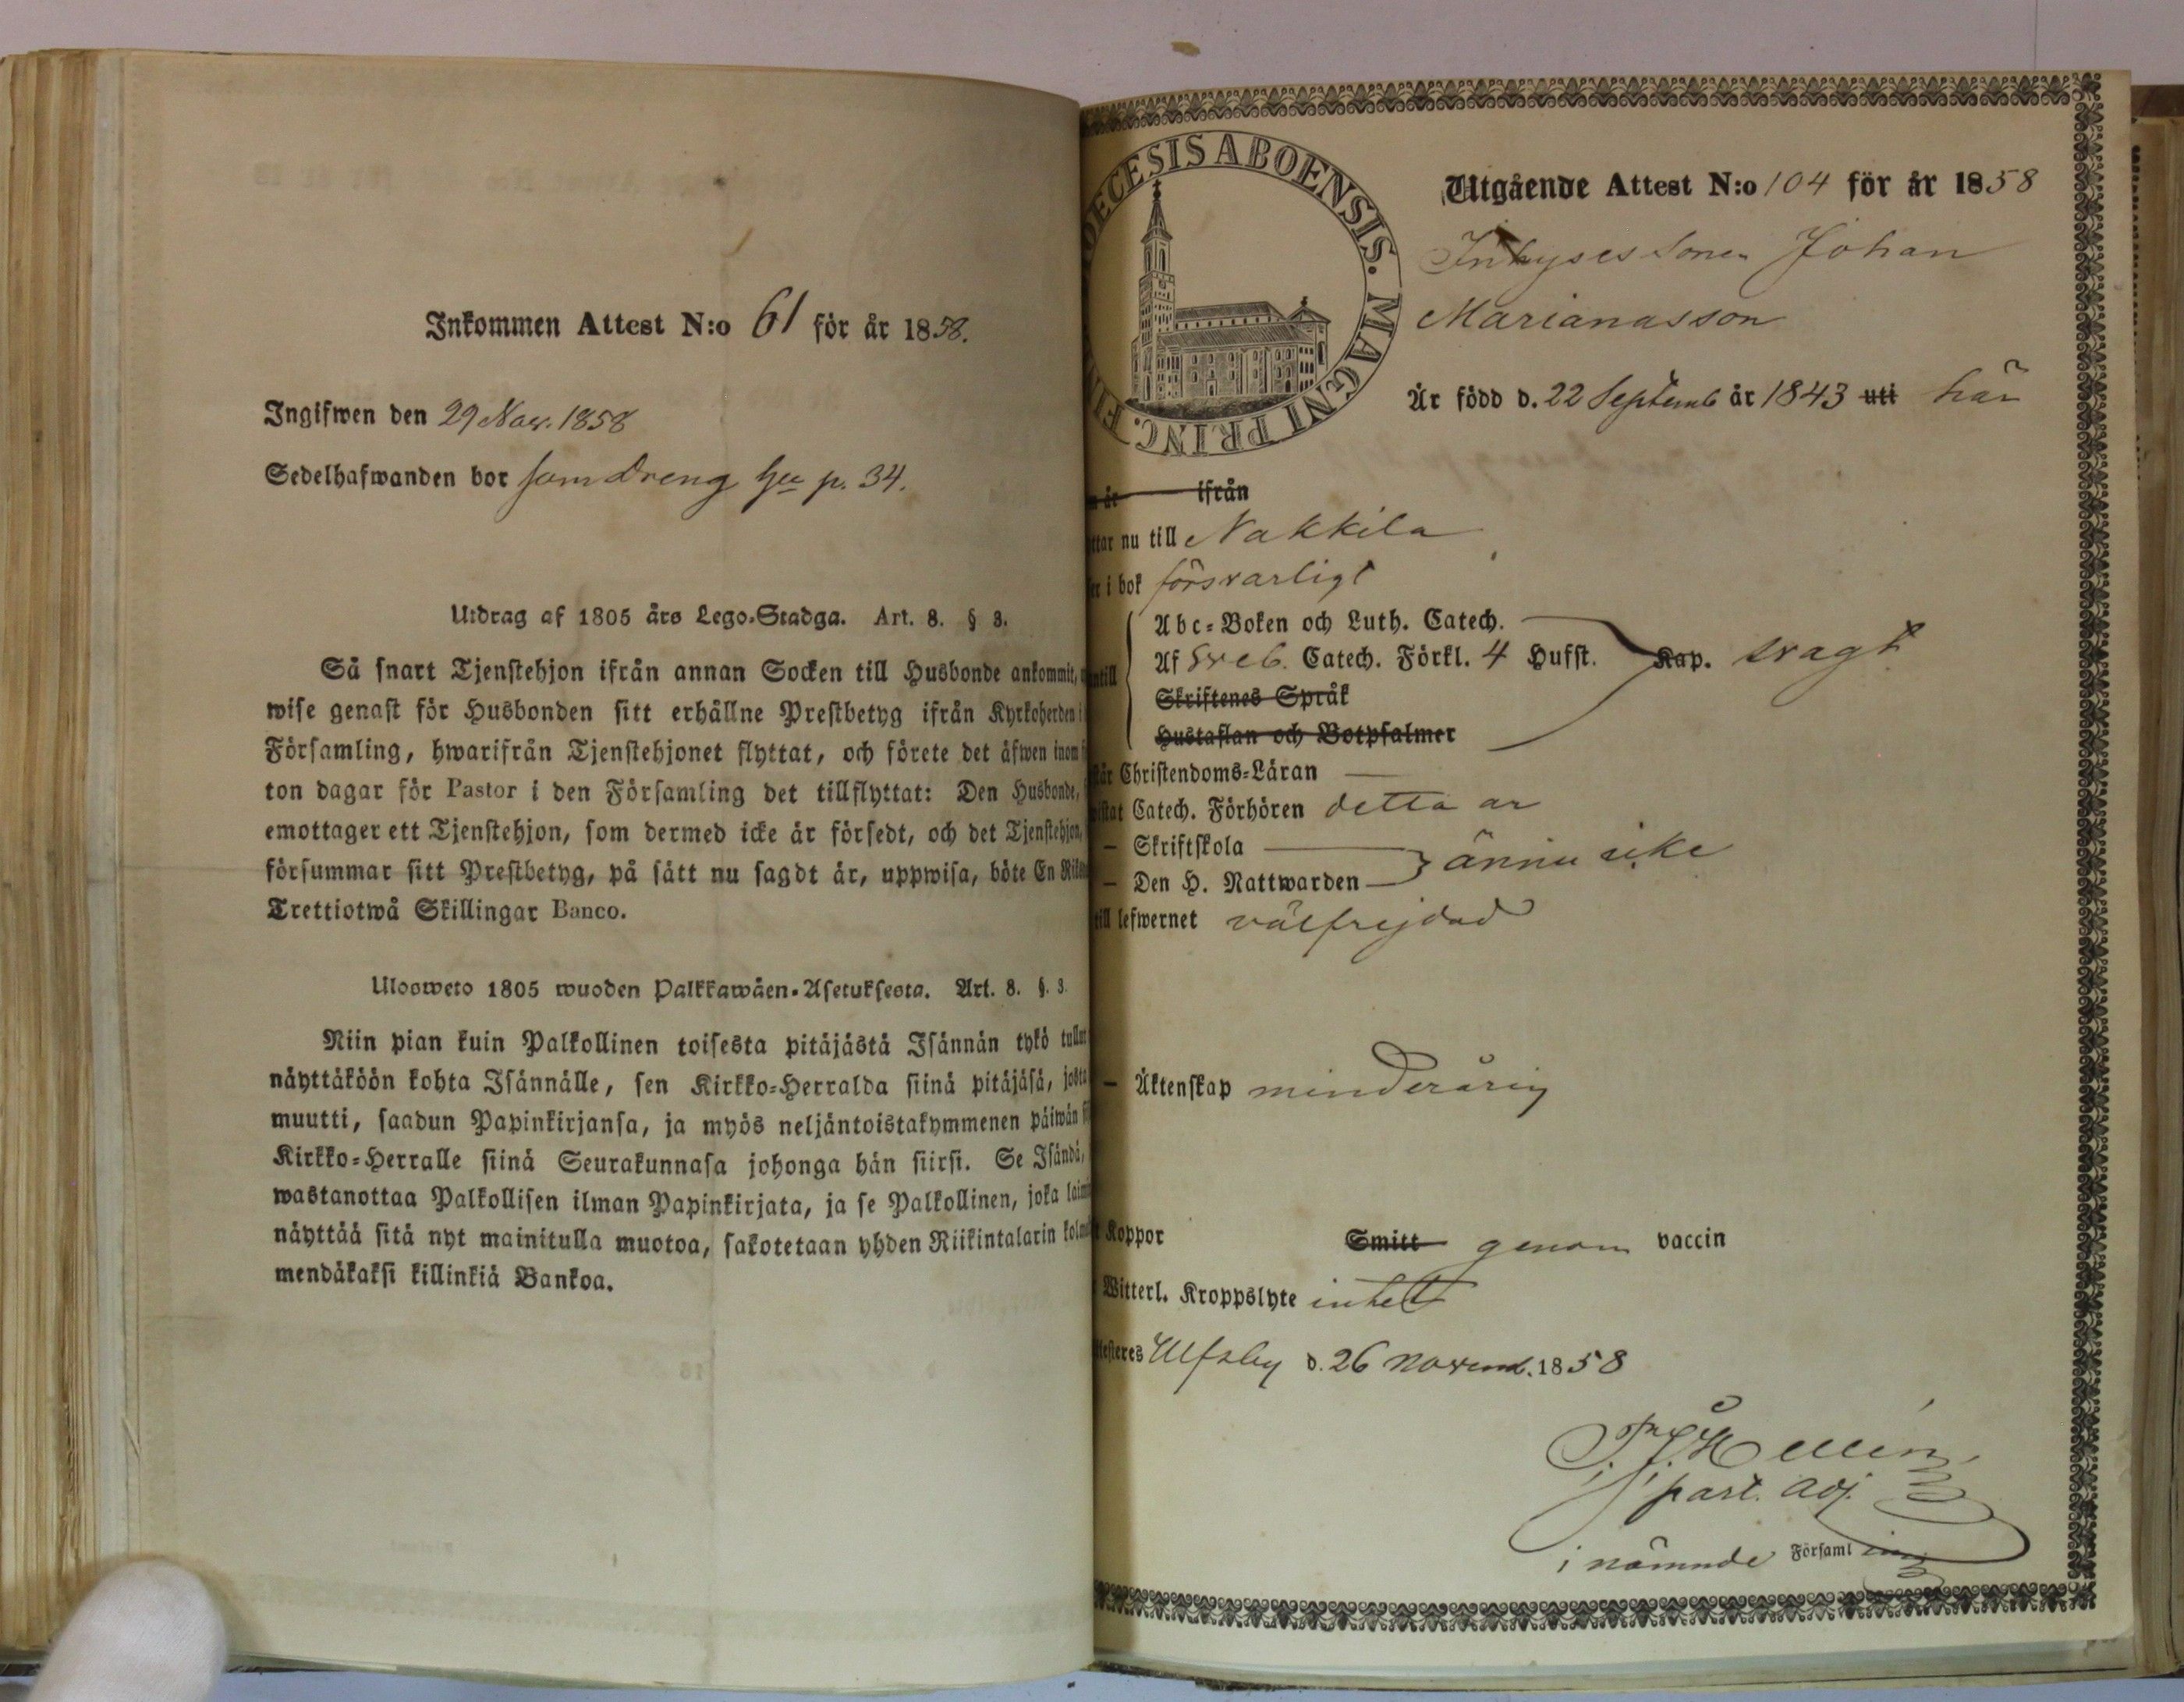 Inkommen Attest N:o 61 för år 1858.
Ingifwen den 29 Nov. 1858
Sedelhafwanden bor som dreng p. 34.
Utdrag af 1805 års Lego-Stadga. Art. 8. § 3.
Så snart Tjenstehjon ifrån annan Socken till Husbonde ankommit,
wise genast för Husbonden sitt erhållne Prestbetyg ifrån Kyrkoherden i
Församling, hwarifrån Tjenstehjonet flyttat, och förete det äfwen inom
ton dagar för Pastor i den Församling det tillflyttat: Den Husbonde,
emottager ett Tjenstehjon, som dermed icke är försedt, och det Tjenstehjon,
försummar sitt Prestbetyg, på sätt nu sagdt är, uppwisa, böte En
Trettiotwå Skillingar Banco.
Ulosweto 1805 wuoden Palkkawäen-Asetuksesta. Art. 8. §. 3.
Niin pian kuin Palkollinen toisesta pitäjästä Isännän tykö tullut
näyttäköön kohta Isännälle, sen Kirkko-Herralda siinä pitäjäsä, josta
muutti, saadun Papinkirjansa, ja myös neljäntoistakymmenen päiwän
Kirkko-Herralle siinä Seurakunnasa johonga hän siirsi. Se Isändä,
wastanottaa Palkollisen ilman Papinkirjata, ja se Palkollinen, joka
näyttää sitä nyt mainitulla muotoa, sakotetaan yhden Riikintalarin
mendäkaksi killinkiä Bankoa.
OECESIS ABOENSIS. MAGNI PRINC. FIN
Utgående Attest N:o 104 för år 1858
Inhyses sonen Johan
Marianasson
Är född d. 22 Septemb år 1843 uti här
år ifrån
ttar nu till Nakkila
er i bok försvarligt
Abc-Boken och Luth. Catech.
Af Sveb. Catech. Förkl. 4 Hufst. Kap. svagt
ntill
Skriftenes Språk
Hustaflan och Botpsalmer
tår Christendoms-Läran
istat Catech. Förhören detta år
— Skriftskola
— Den H. Nattwarden ännu icke
till lefwernet välfrejdad
— Äktenskap minderårig
Koppor Smitt genom vaccin
Witterl. Kroppslyte intet
testeres Ulfsby d. 26 Novemb. 1858
past. adj.
i nämnde Församling